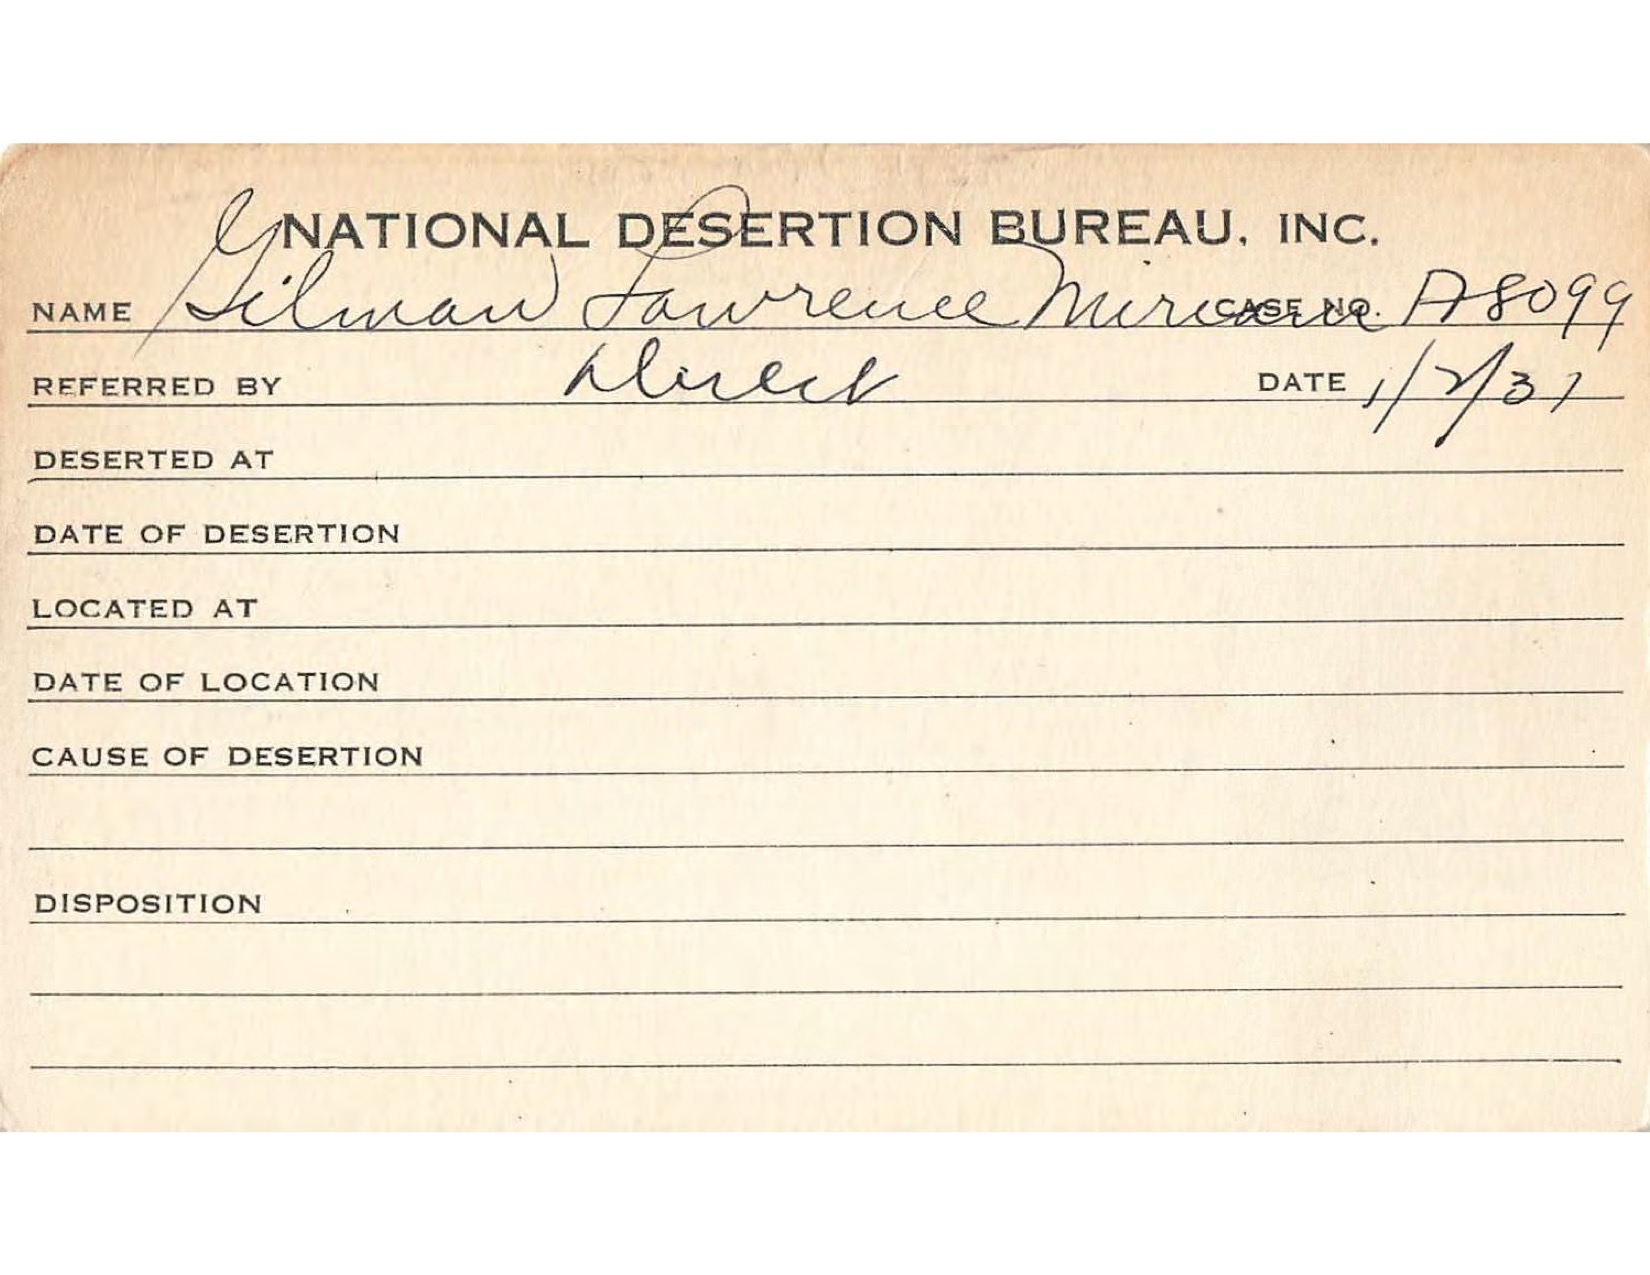 NATIONAL DESERTION BUREAU, INC.
NAME Gilman Lawrence Miriam CASE NO. A8099
REFERRED BY Direct DATE 1/2/37
DESERTED AT
DATE OF DESERTION
LOCATED AT
DATE OF LOCATION
CAUSE OF DESERTION
DISPOSITION